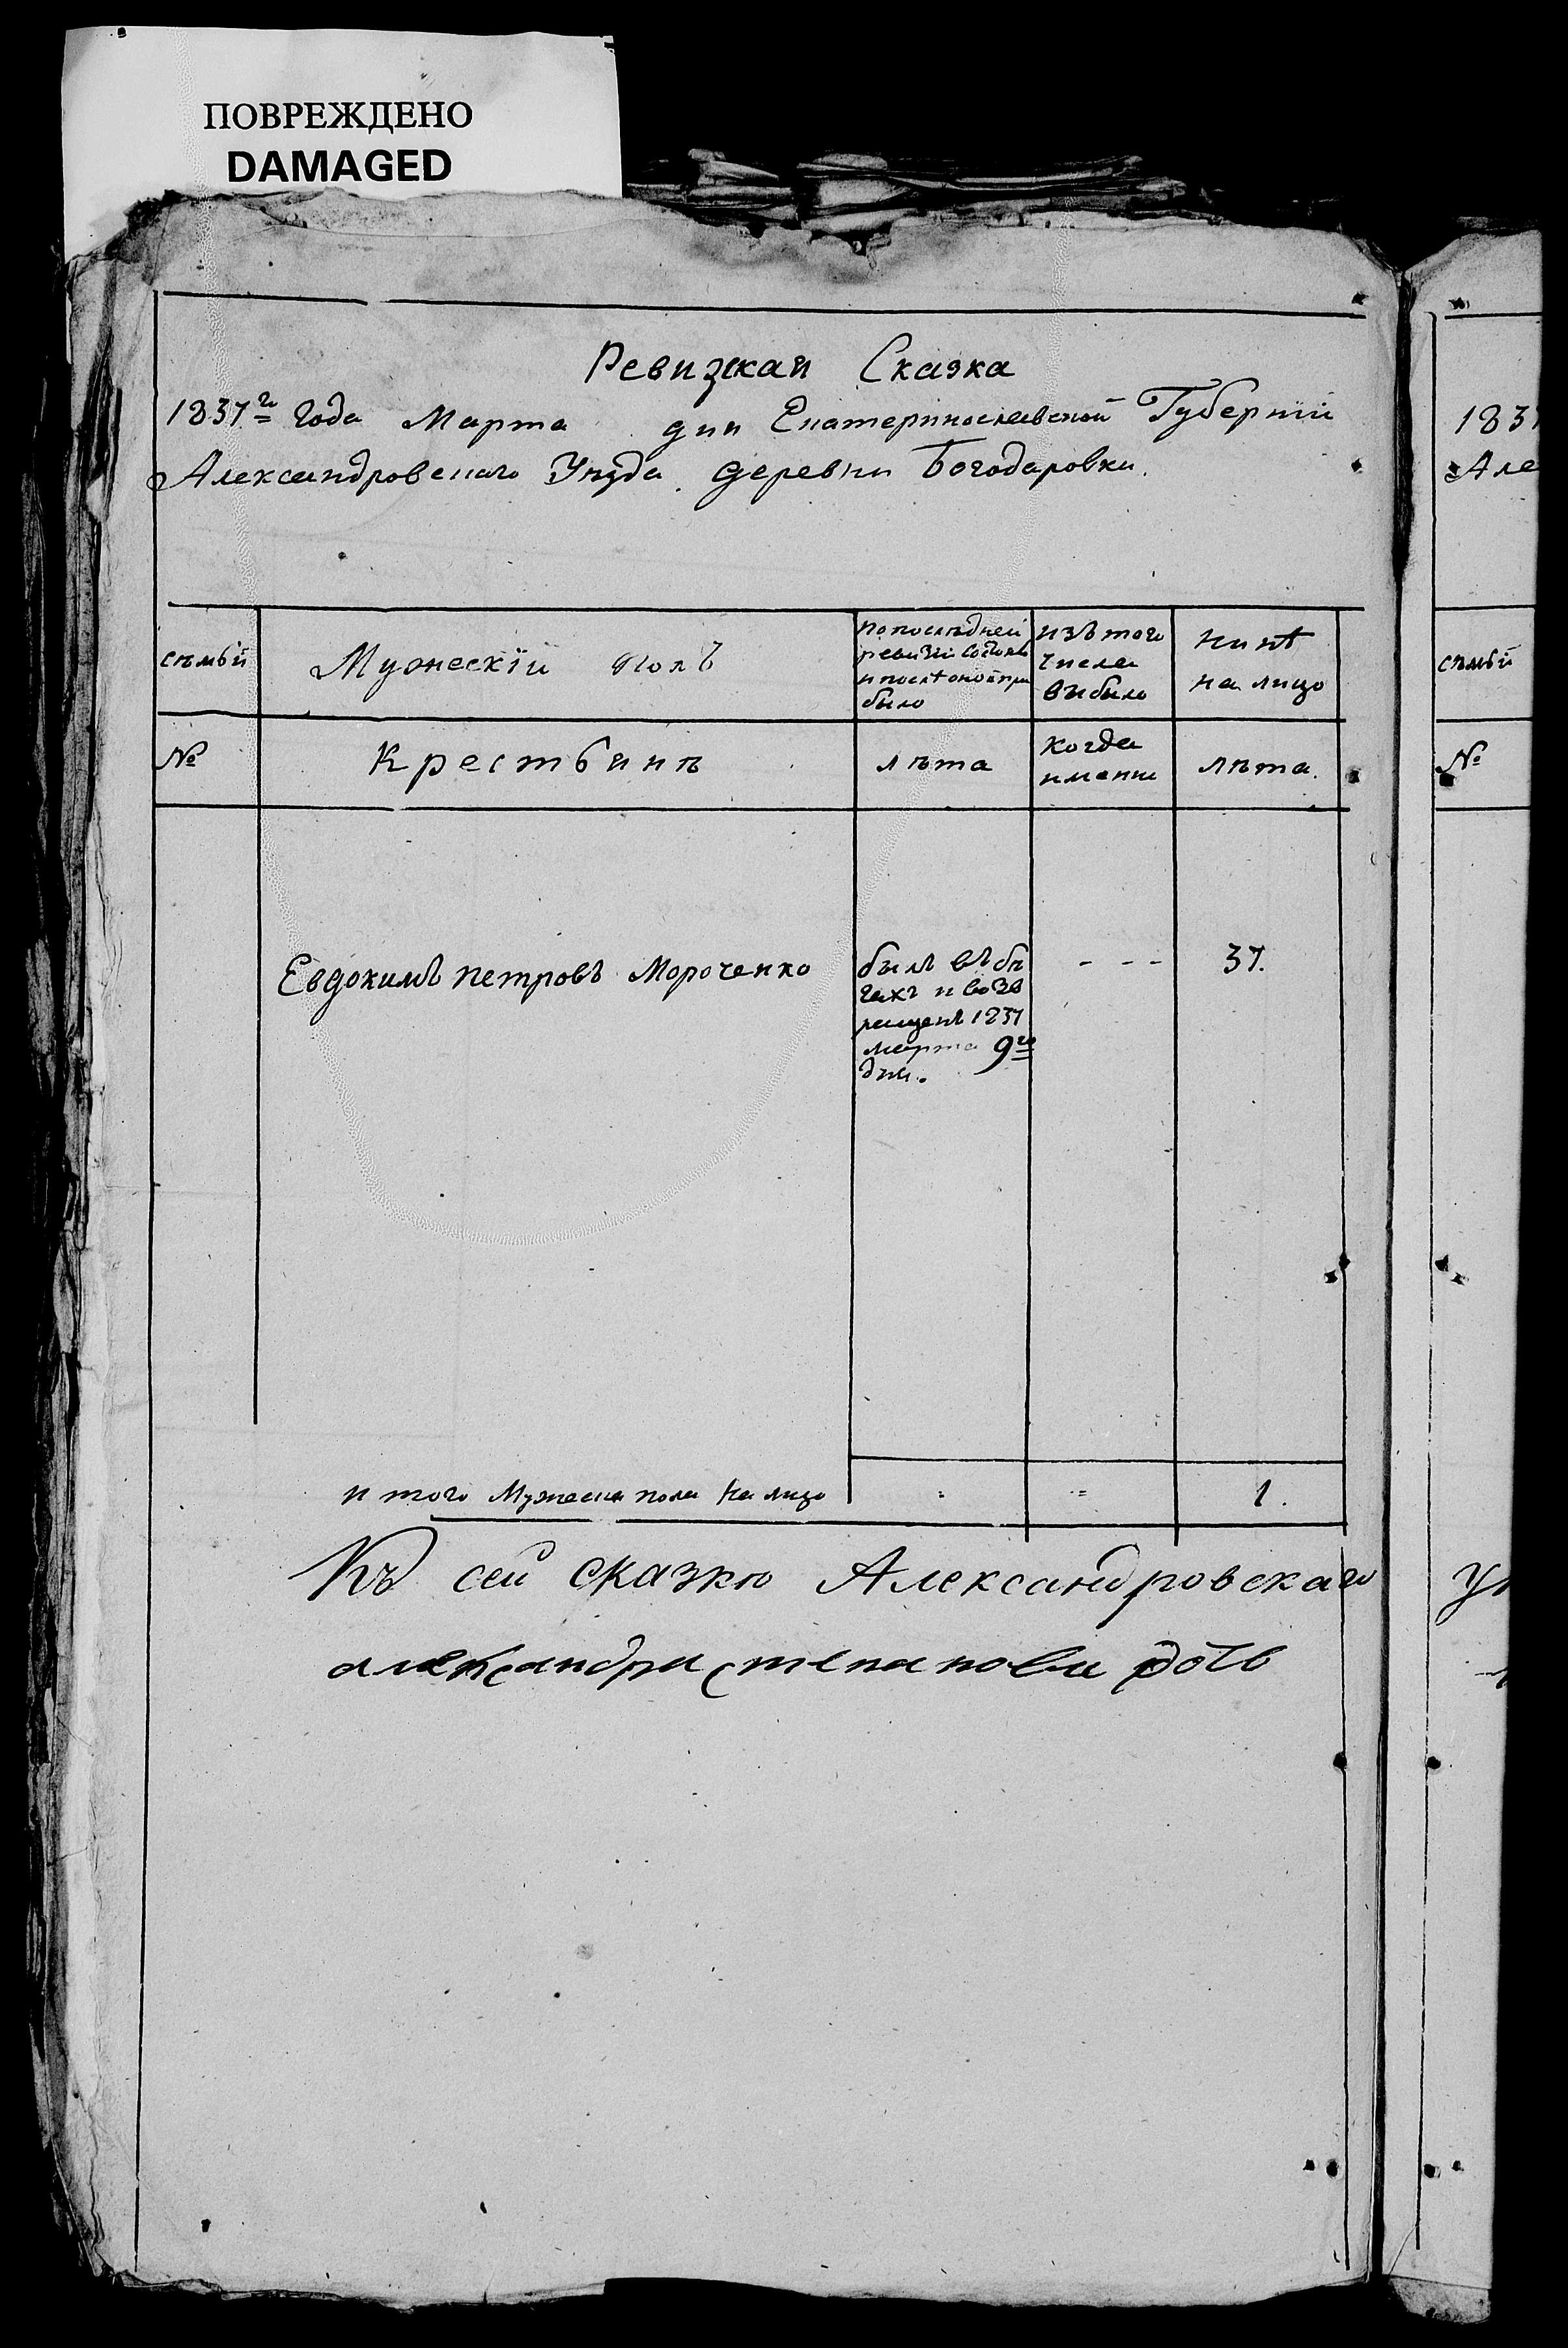 ПОВРЕЖДЕНО
DAMAGED
Ревизкаи Сказка
1837го года Марта дни Екатеринославской Губернїи
Александровскаго Уѣзда деревни Богодаровки.
сѣмьи
Мужескїи полъ
по послѣдней ревизїи состояло и послѣ оной при было
изъ того числа выбыло
нинѣ на лицо
№
Крестьинѣ
лѣта
когда имянно
лѣта.
Евдокимъ петровъ Мороченко
былъ въ бѣ
гахъ и возв
ращенъ 1837
марта 9го
дни.
- - -
37.
итого Мужеска пола на лицо
1.
Къ сей сказкю Александровскаго
александра степанова дочь
1837
Але
сѣмьи
№